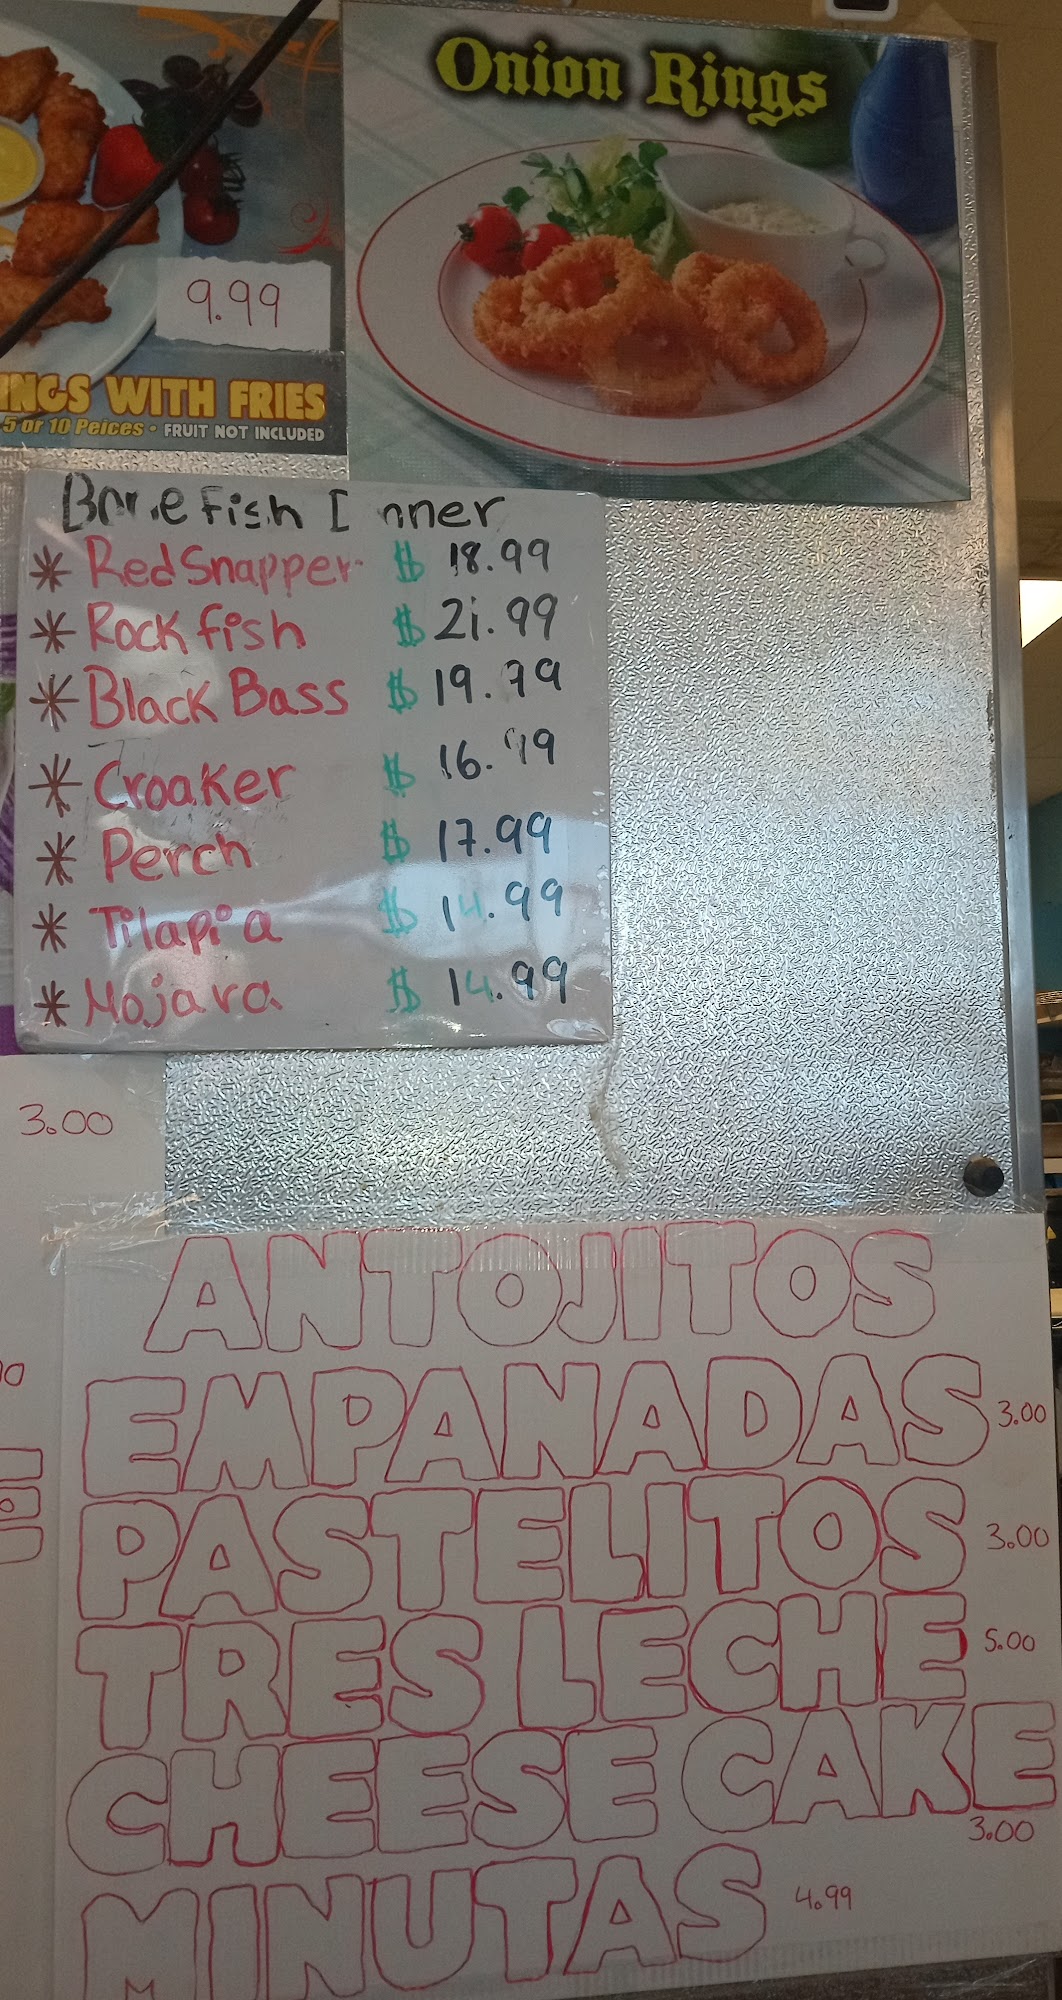 Onion Rings
9.99
INGS WITH FRIES
5 or 10 Peices • FRUIT NOT INCLUDED
Bone Fish Dinner
* Red Snapper $ 18.99
* Rock fish $ 21.99
* Black Bass $ 19.99
* Croaker $ 16.99
* Perch $ 17.99
* Tilapia $ 14.99
* Mojara $ 14.99
3.00
ANTOJITOS
EMPANADAS 3.00
PASTELITOS 3.00
TRES LECHE 5.00
CHEESE CAKE
3.00
MINUTAS 4.99